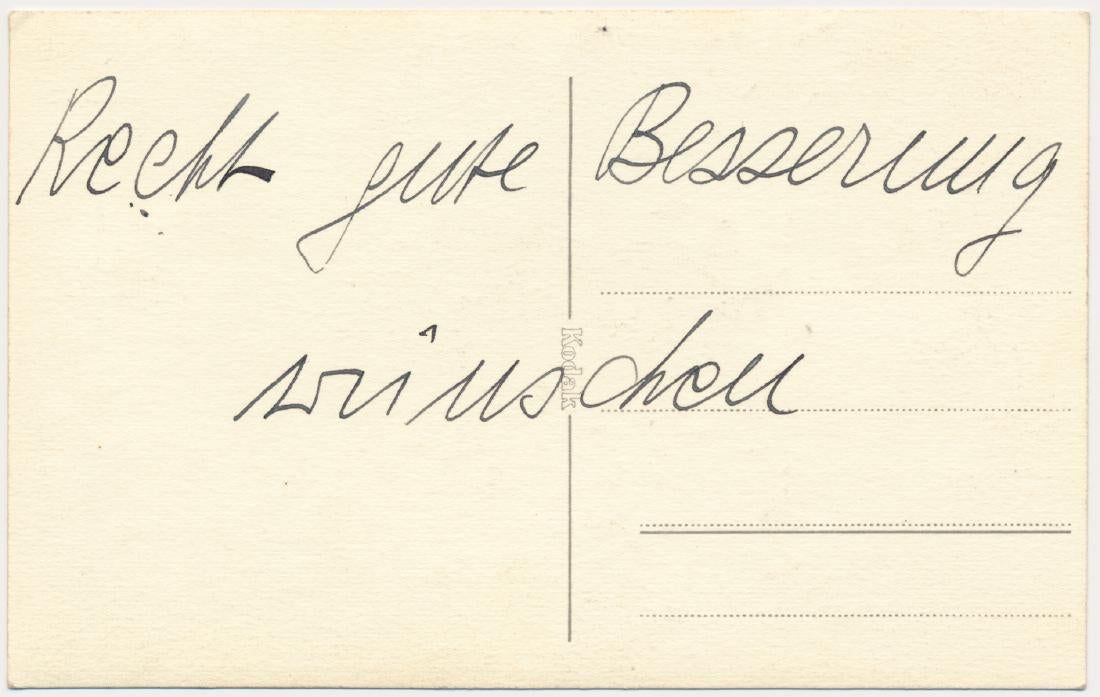 Recht gute Besserung
wünschen
Kodak